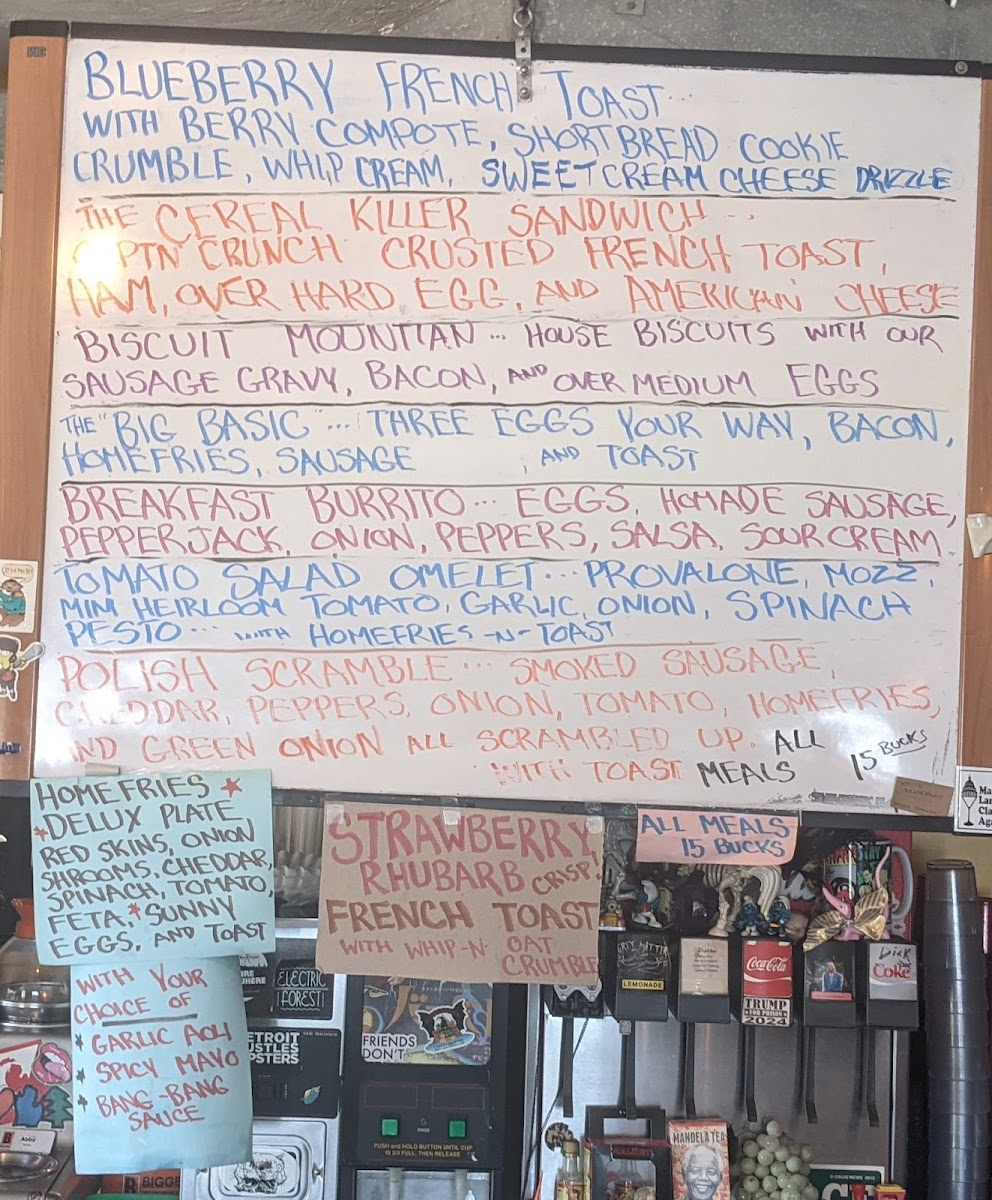 BLUEBERRY FRENCH TOAST...
WITH BERRY COMPOTE, SHORTBREAD COOKIE
CRUMBLE, WHIP CREAM, SWEET CREAM CHEESE DRIZZLE
THE CEREAL KILLER SANDWICH...
CPTN CRUNCH CRUSTED FRENCH TOAST,
HAM, OVER HARD EGG, AND AMERICAN CHEESE
BISCUIT MOUNTIAN... HOUSE BISCUITS WITH OUR
SAUSAGE GRAVY, BACON, AND OVER MEDIUM EGGS
THE "BIG BASIC"... THREE EGGS YOUR WAY, BACON,
HOMEFRIES, SAUSAGE , AND TOAST
BREAKFAST BURRITO... EGGS, HOMADE SAUSAGE,
PEPPERJACK, ONION, PEPPERS, SALSA, SOUR CREAM.
TOMATO SALAD OMELET... PROVALONE, MOZZ,
MINI HEIRLOOM TOMATO, GARLIC, ONION, SPINACH
PESTO... WITH HOMEFRIES -N- TOAST
POLISH SCRAMBLE... SMOKED SAUSAGE,
CHEDDAR, PEPPERS, ONION, TOMATO, HOMEFRIES,
AND GREEN ONION ALL SCRAMBLED UP.
WITH TOAST
ALL
MEALS 15 BUCKS
HOMEFRIES
DELUX PLATE
RED SKINS, ONION
SHROOMS, CHEDDAR,
SPINACH, TOMATO,
FETA, SUNNY
EGGS, AND TOAST
WITH YOUR
CHOICE OF
* GARLIC AOLI
* SPICY MAYO
* BANG-BANG
SAUCE
STRAWBERRY
RHUBARB CRISP!
FRENCH TOAST
WITH WHIP -N- OAT
CRUMBLE
ALL MEALS
15 BUCKS
LEMONADE
Coca-Cola
TRUMP
FOR PRISON
2024
Dick
Coke
ELECTRIC
FOREST
DETROIT
HUSTLES
FRIENDS
DON'T
PUSH and HOLD BUTTON UNTIL CUP
IS 2/3 FULL, THEN RELEASE
MANDELA TEA
BIGGE